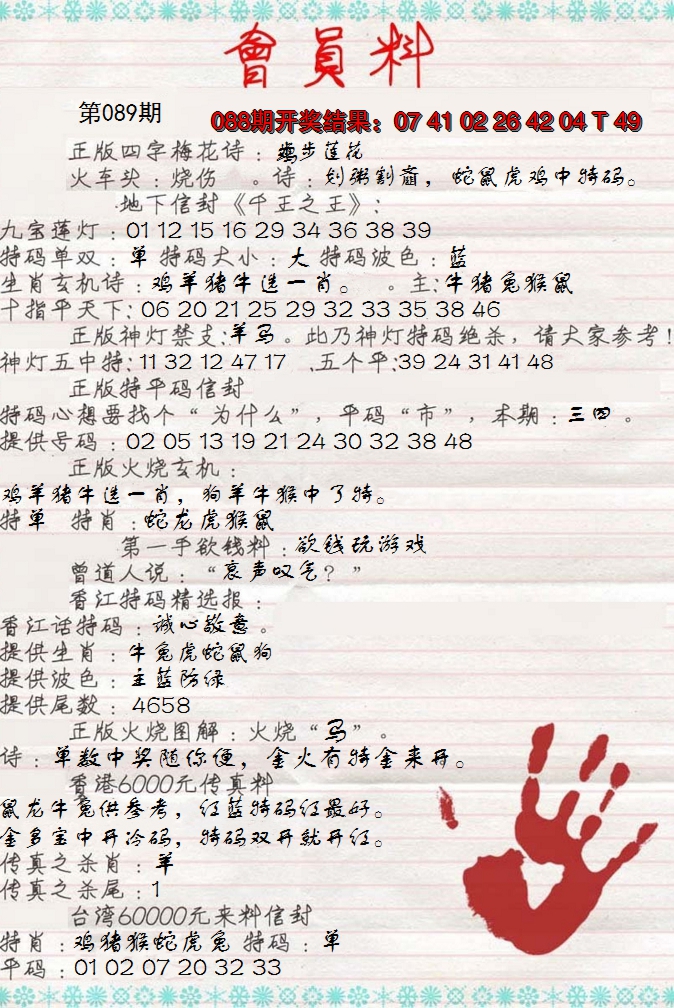 會員料
第089期
088期开奖结果：07 41 02 26 42 04 T 49
正版四字梅花诗：鹅步莲花
火车头：烧伤 。诗：划粥割齑，蛇鼠虎鸡中特码。
地下信封《千王之王》：
九宝莲灯：01 12 15 16 29 34 36 38 39
特码单双：单 特码大小：大 特码波色：蓝
生肖玄机诗：鸡羊猪牛选一肖。 。主：牛猪兔猴鼠
十指平天下：06 20 21 25 29 32 33 35 38 46
正版神灯禁支：羊马。此乃神灯特码绝杀，请大家参考！
神灯五中特：11 32 12 47 17 .五个平：39 24 31 41 48
正版特平码信封
特码心想要找个“为什么”，平码“市”，本期：三四。
提供号码：02 05 13 19 21 24 30 32 38 48
正版火烧玄机：
鸡羊猪牛选一肖，狗羊牛猴中了特。
特单 特肖：蛇龙虎猴鼠
第一手欲钱料：欲钱玩游戏
曾道人说：“哀声叹气？”
香江特码精选报：
香江话特码：诚心敬意。
提供生肖：牛兔虎蛇鼠狗
提供波色：主蓝防绿
提供尾数：4658
正版火烧图解：火烧“马”。
诗：单数中奖随你便，金火有特金来开。
香港6000元传真料
鼠龙牛兔供参考，红蓝特码红最好。
金多宝中开冷码，特码双开就开红。
传真之杀肖：羊
传真之杀尾：1
台湾60000元来料信封
特肖：鸡猪猴蛇虎兔 特码：单
平码：01 02 07 20 32 33